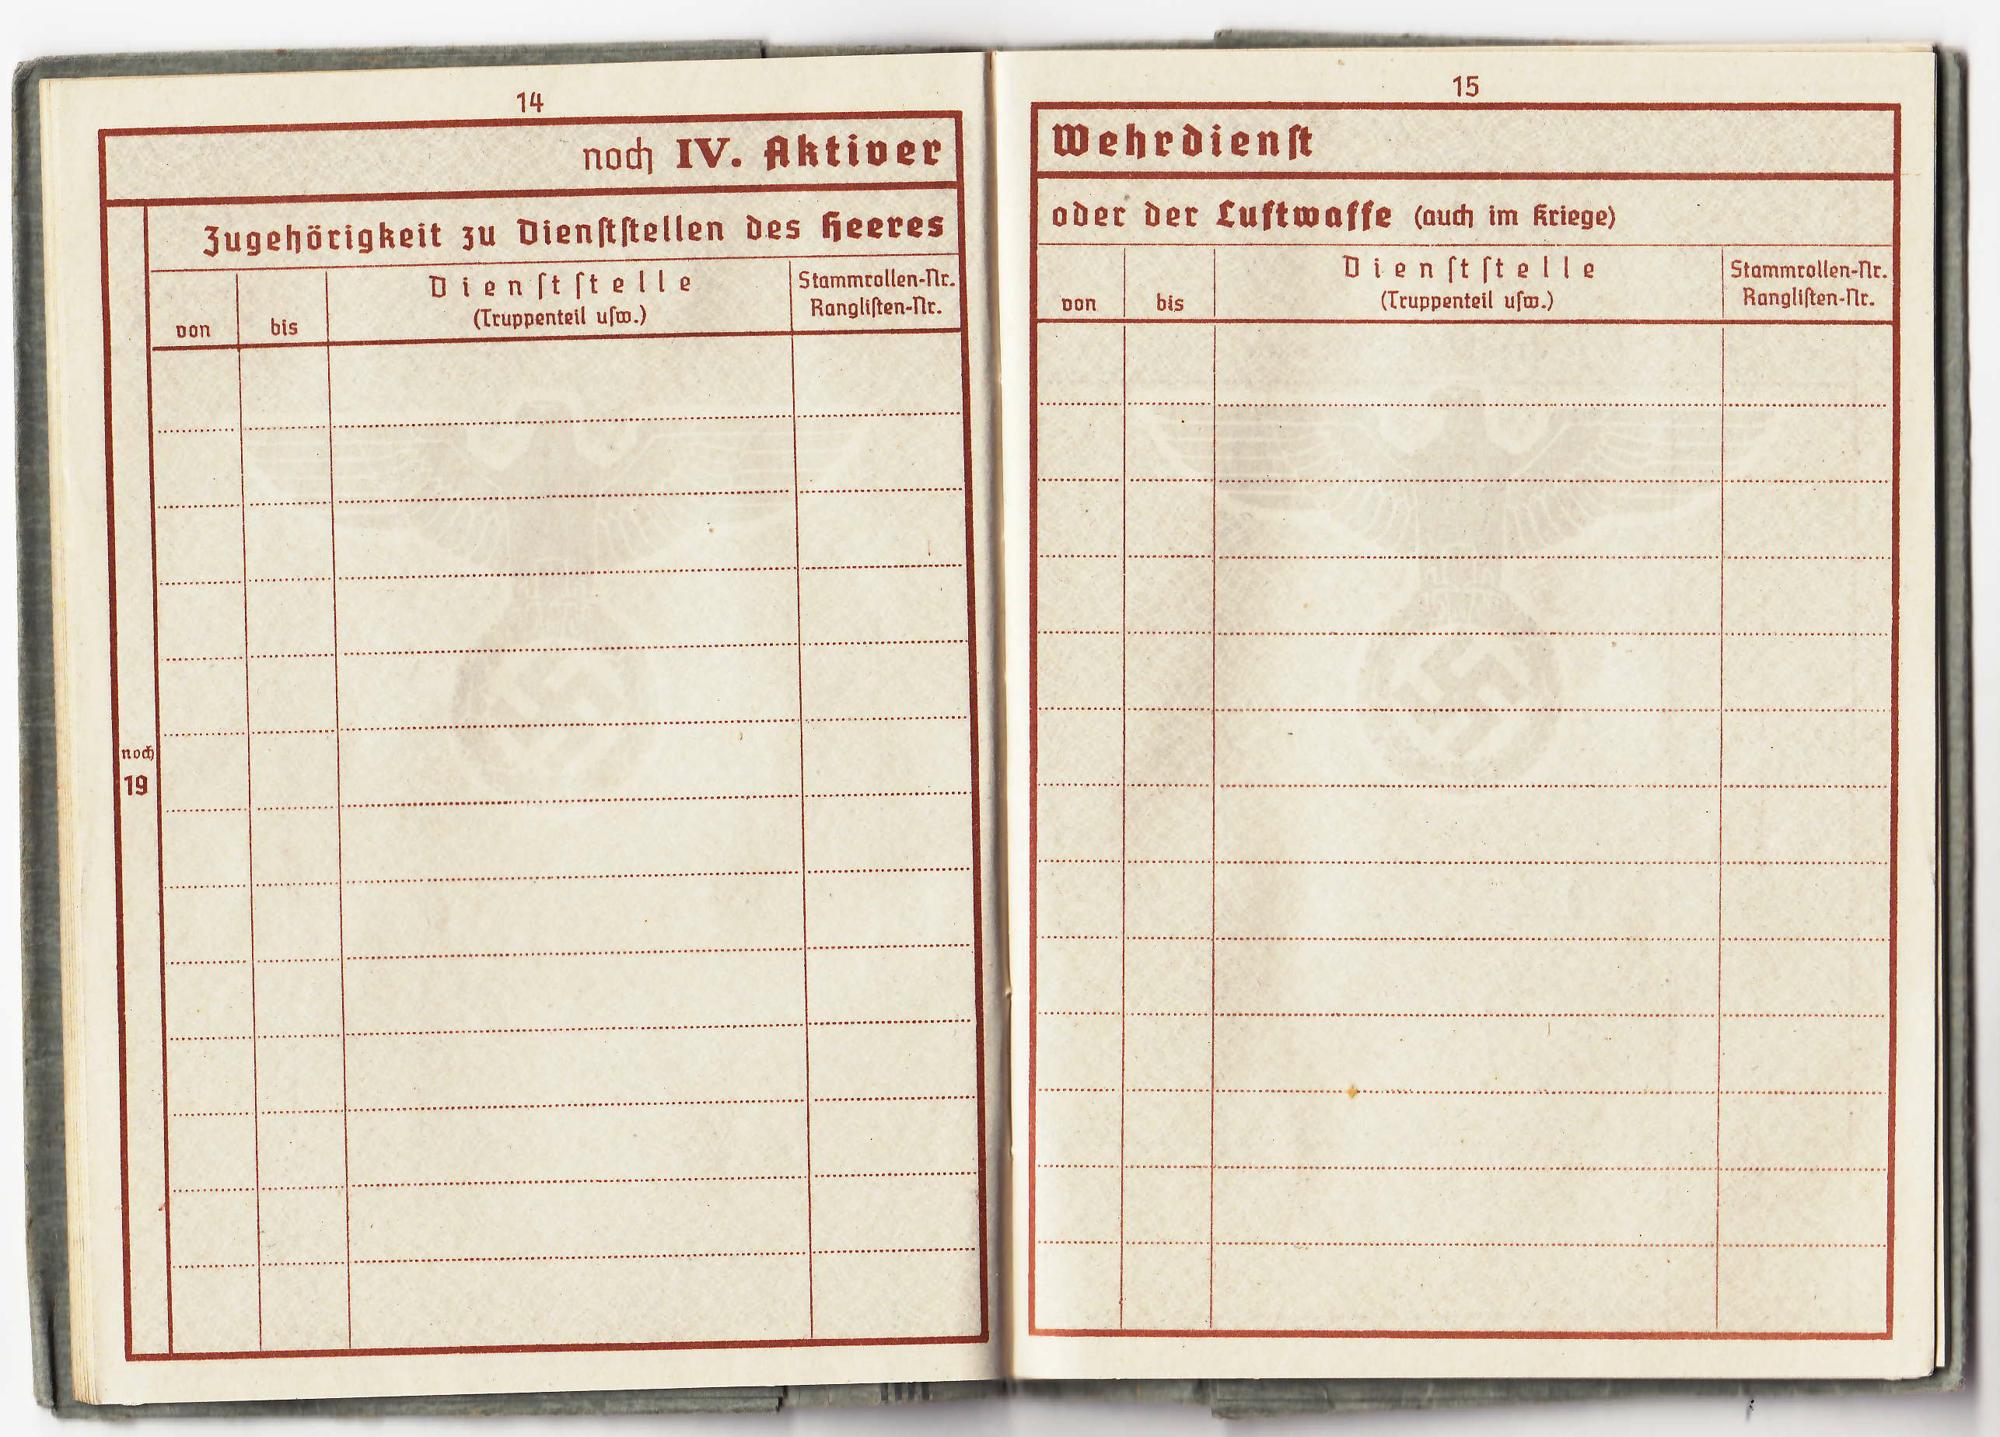 14
noch IV. Aktiver
Zugehörigkeit zu Dienſtſtellen des Heeres
von
bis
Dienſtſtelle
(Truppenteil uſw.)
Stammrollen-Nr.
Rangliſten-Nr.
noch
19
15
Wehrdienſt
oder der Luftwaffe (auch im Kriege)
von
bis
Dienſtſtelle
(Truppenteil uſw.)
Stammrollen-Nr.
Rangliſten-Nr.